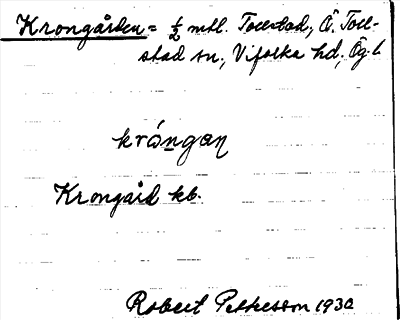 Krongården = ½ mtl. Tollstad, Ö. Toll-
stad sn., Vifolka hd, Ög. l.
krångan
Krongård kb.
Robert Pettersson 1930